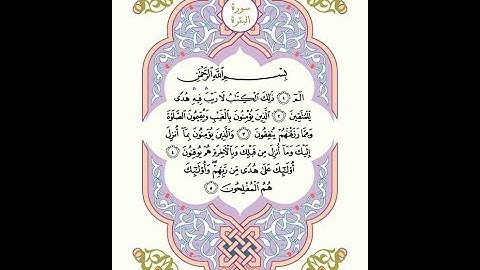 سورة
البقرة
بِسْمِ اللَّهِ الرَّحْمَٰنِ
الٓمٓ ۝١ ذَٰلِكَ الْكِتَٰبُ لَا رَيْبَ ۛ فِيهِ ۛ هُدًى
لِّلْمُتَّقِينَ ۝٢ الَّذِينَ يُؤْمِنُونَ بِالْغَيْبِ وَيُقِيمُونَ الصَّلَوٰةَ
وَمِمَّا رَزَقْنَٰهُمْ يُنفِقُونَ ۝٣ وَالَّذِينَ يُؤْمِنُونَ بِمَآ أُنزِلَ
إِلَيْكَ وَمَآ أُنزِلَ مِن قَبْلِكَ وَبِالْءَاخِرَةِ هُمْ يُوقِنُونَ ۝٤
أُو۟لَٰٓئِكَ عَلَىٰ هُدًى مِّن رَّبِّهِمْ ۖ وَأُو۟لَٰٓئِكَ
هُمُ الْمُفْلِحُونَ ۝٥